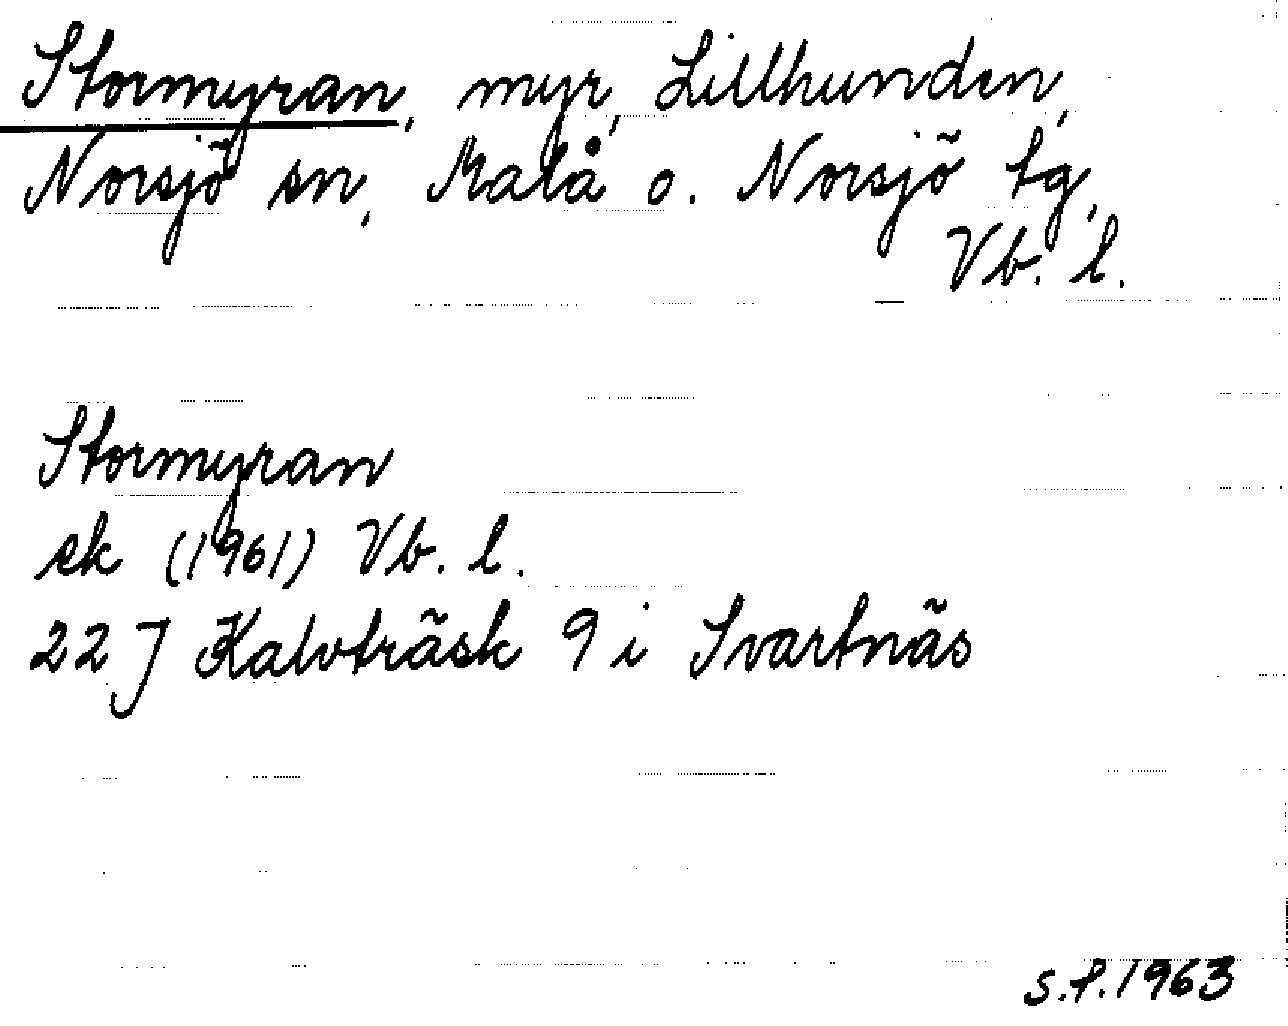 Stormyran, myr, Lillhunden,
Norsjö sn, Malå o. Norsjö tg,
Vb. l.
Stormyran
ek (1961) Vb. l.
22 J Kalvträsk 9 i Svartnäs
S.f. 1963